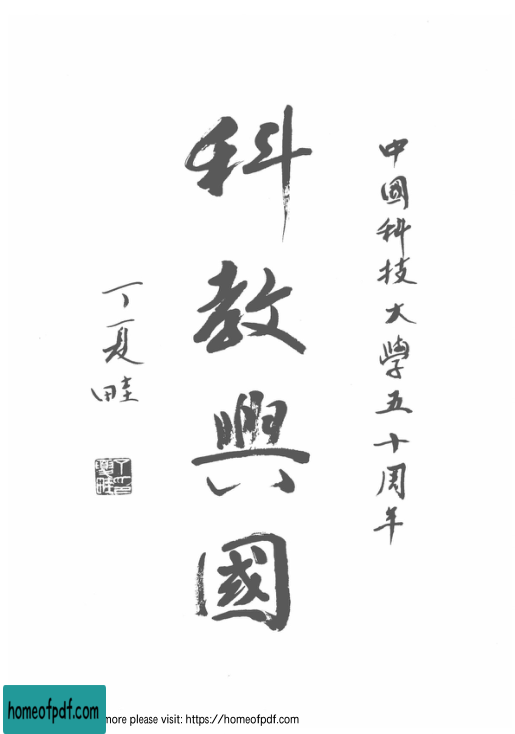 中國科技大學五十周年
科教興國
丁夏畦
homeofpdf.com
more please visit: https://homeofpdf.com